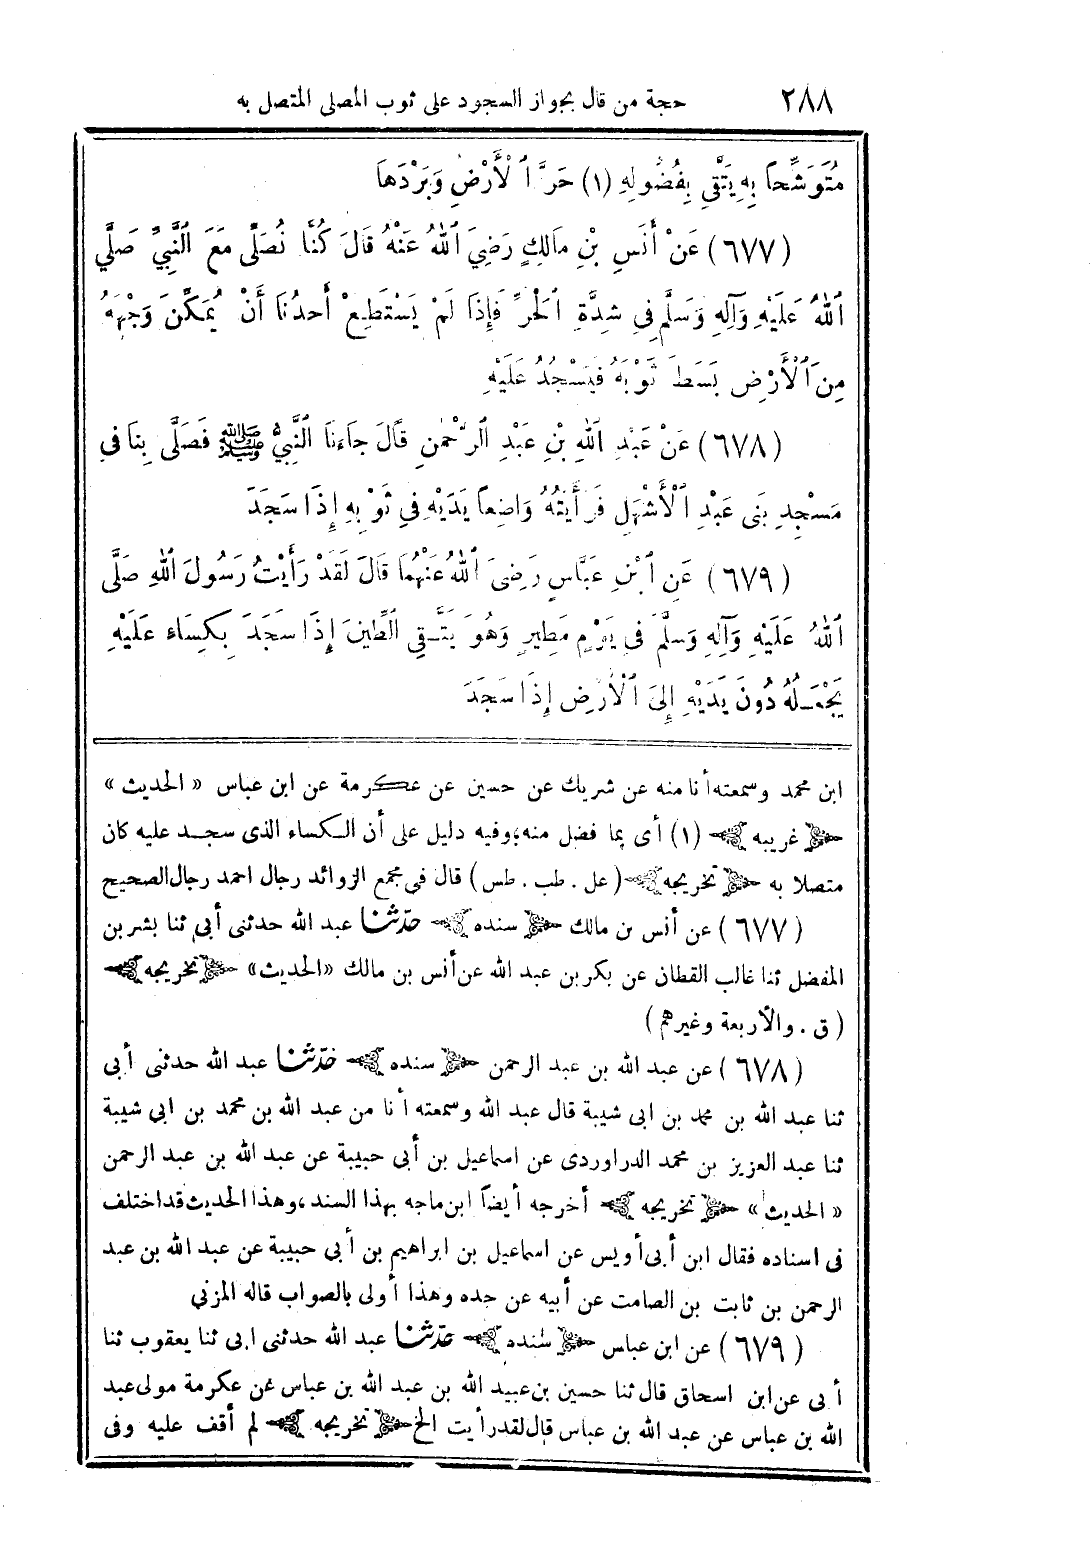 ٢٨٨ حجة من قال بجواز السجود على ثوب المصلى المتصل به
مُتَوَشِّحًا بِهِ يَتَّقِي بِفُضُولِهِ (١) حَرَّ الْأَرْضِ وَبَرْدَهَا
(٦٧٧) عَنْ أَنَسِ بْنِ مَالِكٍ رَضِيَ اللهُ عَنْهُ قَالَ كُنَّا نُصَلِّي مَعَ النَّبِيِّ صَلَّي
اللهُ عَلَيْهِ وَآلِهِ وَسَلَّمَ فِي شِدَّةِ الْحَرِّ فَإِذَا لَمْ يَسْتَطِعْ أَحَدُنَا أَنْ يُمَكِّنَ وَجْهَهُ
مِنَ الْأَرْضِ بَسَطَ ثَوْبَهُ فَيَسْجُدُ عَلَيْهِ
(٦٧٨) عَنْ عَبْدِ اللهِ بْنِ عَبْدِ الرَّحْمٰنِ قَالَ جَاءَنَا النَّبِيُّ ﷺ فَصَلَّى بِنَا فِي
مَسْجِدِ بَنِى عَبْدِ الْأَشْهَلِ فَرَأَيْتُهُ وَاضِعًا يَدَيْهِ فِي ثَوْبِهِ إِذَا سَجَدَ
(٦٧٩) عَنِ ابْنِ عَبَّاسٍ رَضِىَ اللهُ عَنْهُمَا قَالَ لَقَدْ رَأَيْتُ رَسُولَ اللهِ صَلَّى
اللهُ عَلَيْهِ وَآلِهِ وَسَلَّمَ فِى يَوْمٍ مَطِيرٍ وَهُوَ يَتَّـقِي الطِّينَ إِذَا سَجَدَ بِكِسَاءٍ عَلَيْهِ
يَجْعَـلُهُ دُونَ يَدَيْهِ إِلَى الْأَرْضِ إِذَا سَجَدَ
ابن محمد وسمعته أنا منه عن شريك عن حسين عن عكرمة عن ابن عباس « الحديث »
﴿ غريبه ﴾ (١) أى بما فضل منه؛ وفيه دليل على أن الكساء الذى سجد عليه كان
متصلا به ﴿ تخريجه ﴾ (عل . طب . طس) قال فى مجمع الزوائد رجال احمد رجال الصحيح
(٦٧٧) عن أنس بن مالك ﴿ سنده ﴾ حدّثنا عبد الله حدثنى أبي ثنا بشر بن
المفضل ثنا غالب القطان عن بكر بن عبد الله عن أنس بن مالك «الحديث» ﴿ تخريجه ﴾
(ق . والأربعة وغيرهم)
(٦٧٨) عن عبد الله بن عبد الرحمن ﴿ سنده ﴾ حدّثنا عبد الله حدثنى أبى
ثنا عبد الله بن محمد بن ابى شيبة قال عبد الله وسمعته أنا من عبد الله بن محمد بن ابي شيبة
ثنا عبد العزيز بن محمد الدراوردى عن اسماعيل بن أبى حبيبة عن عبد الله بن عبد الرحمن
« الحديث » ﴿ تخريجه ﴾ أخرجه أيضاً ابن ماجه بهذا السند، وهذا الحديث قد اختلف
فى اسناده فقال ابن أبى أويس عن اسماعيل بن ابراهيم بن أبى حبيبة عن عبد الله بن عبد
الرحمن بن ثابت بن الصامت عن أبيه عن جده وهذا أولى بالصواب قاله المزني
(٦٧٩) عن ابن عباس ﴿ سنده ﴾ حدّثنا عبد الله حدثنى ابى ثنا يعقوب ثنا
أبى عن ابن اسحاق قال ثنا حسين بن عبيد الله بن عبد الله بن عباس عن عكرمة مولى عبد
الله بن عباس عن عبد الله بن عباس قال لقد رأيت الخ ﴿ تخريجه ﴾ لم أقف عليه وفى